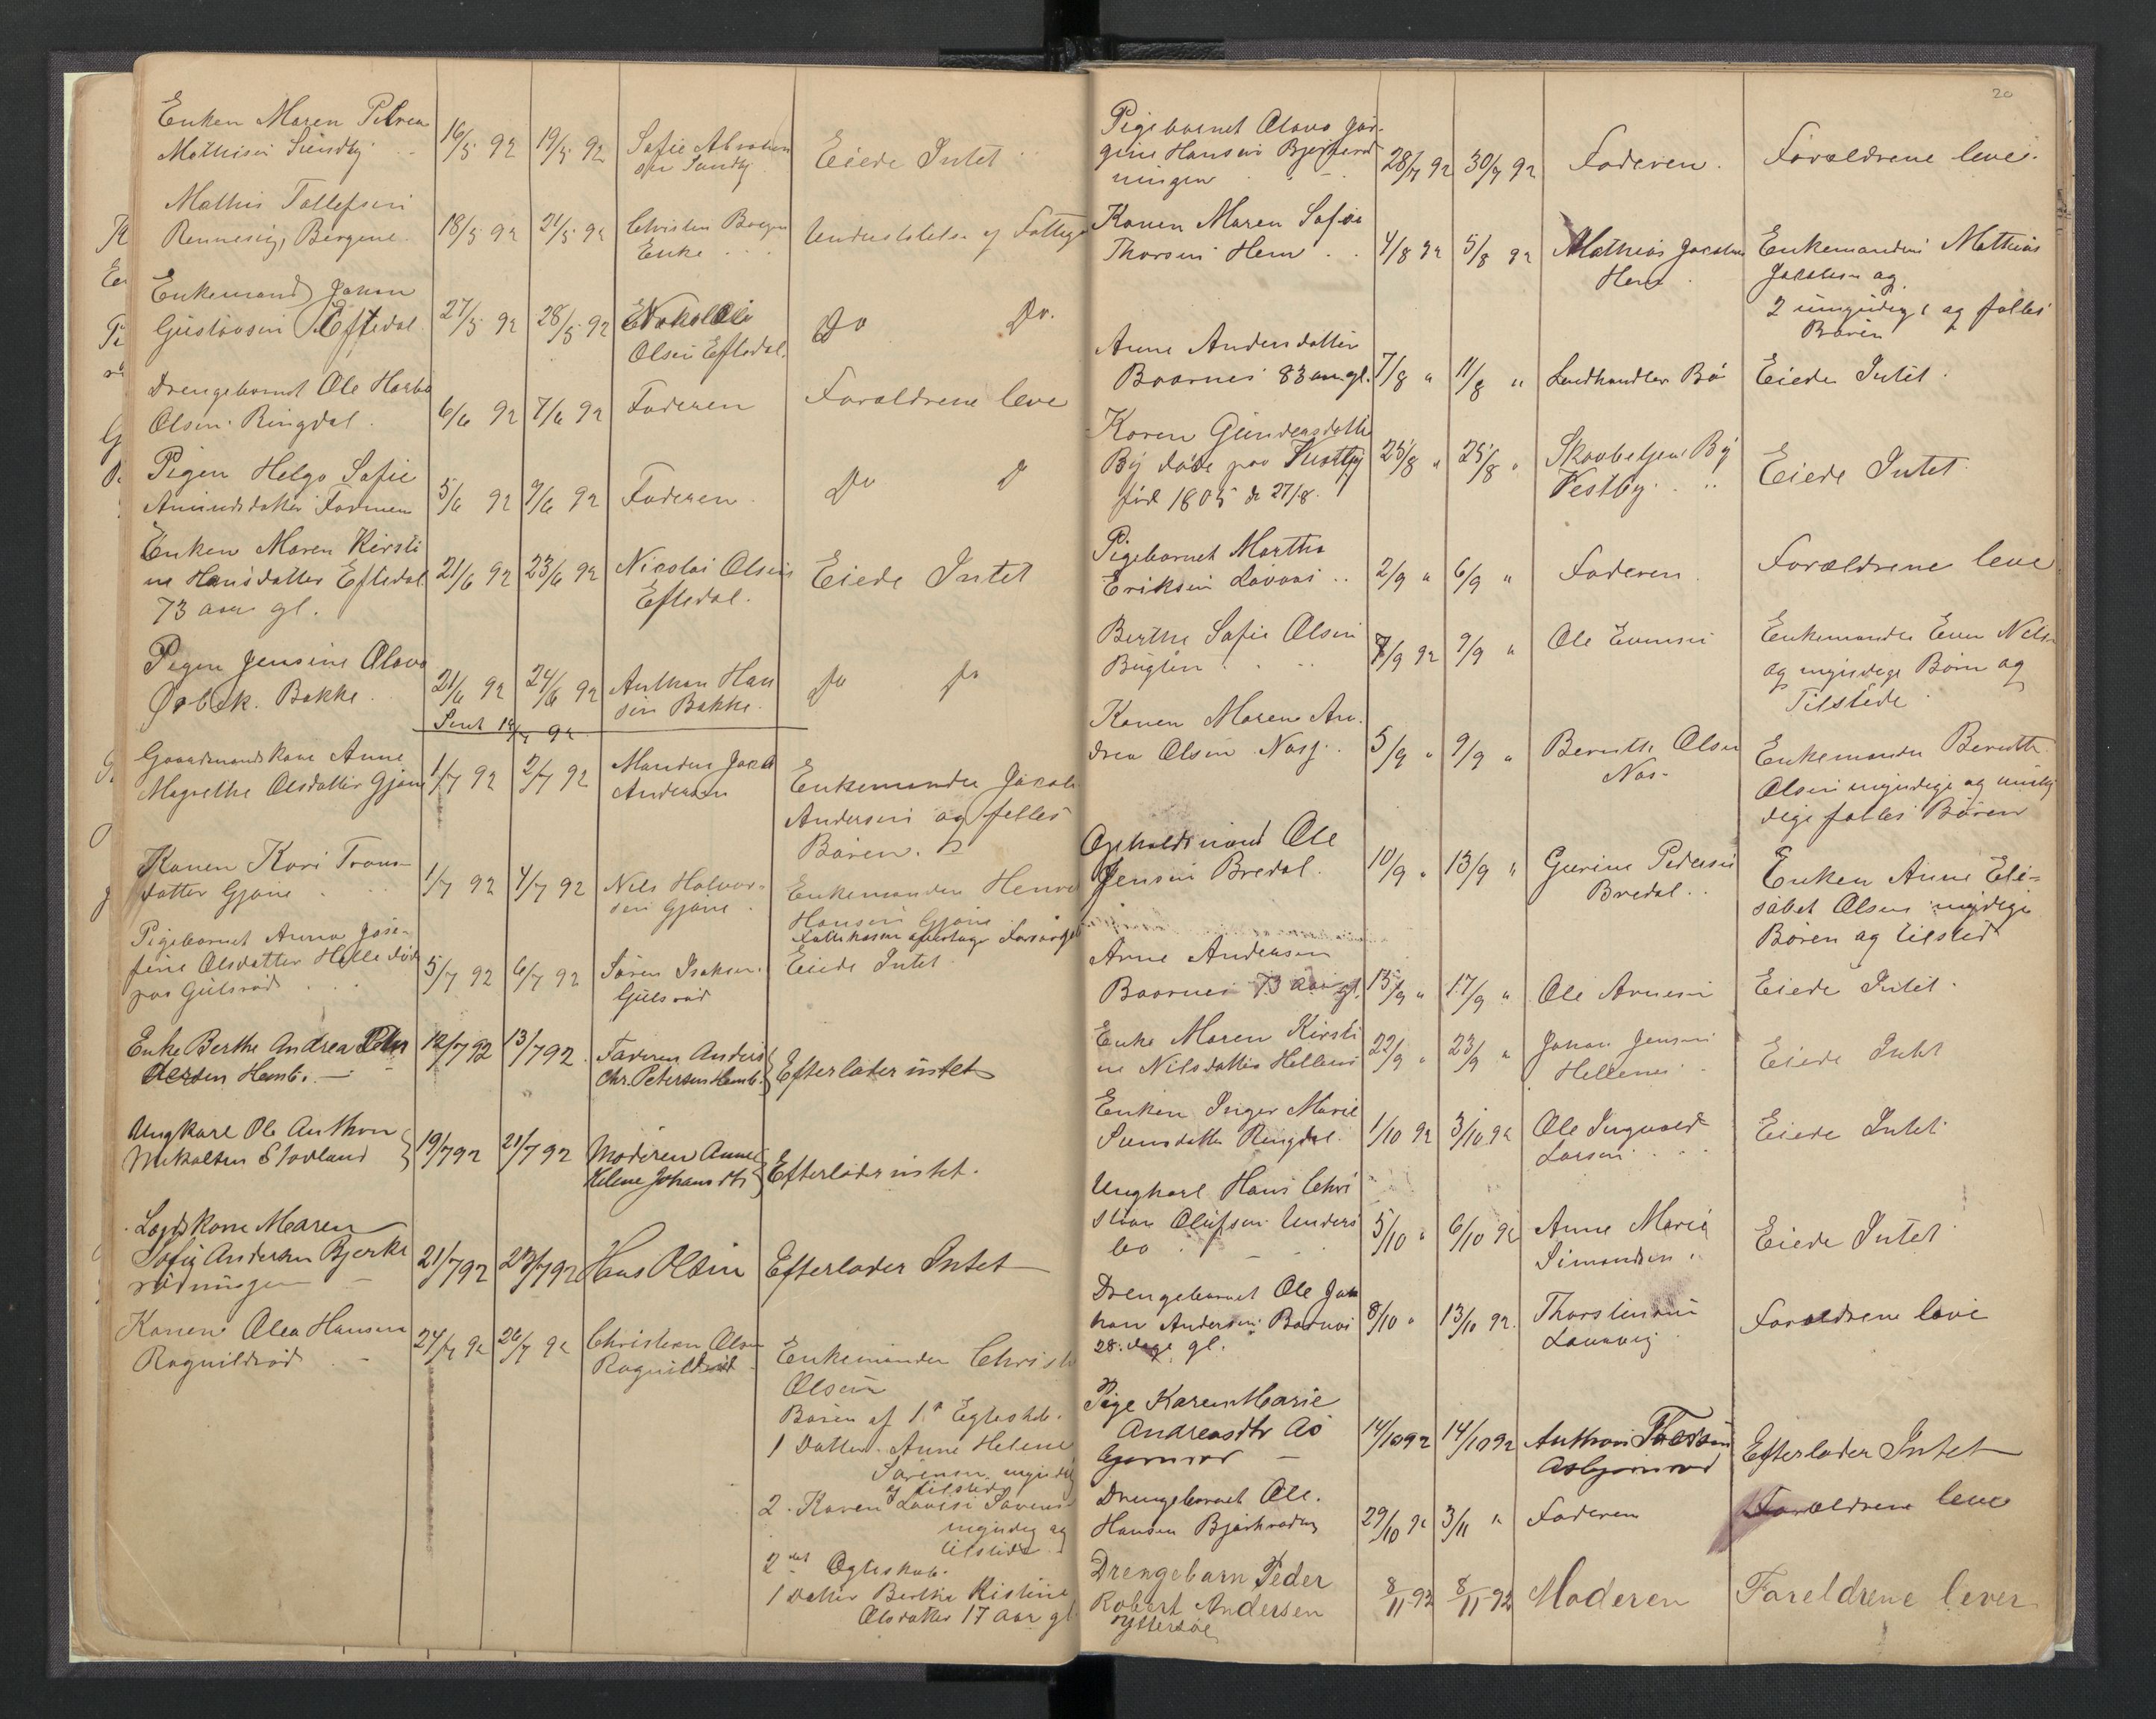 Enken Maren Petrea
Mathisen Sundby 16/5 92 19/5 92 Sofie Abraham
sen Sundby Eiede Intet
Mathis Tollefsen
Rennesig, Bergene 18/5 92 21/5 92 Christen Bergen
Enke Understøttelse af Fattig
Enkemand Johan
Gustavsen Eftedal 27/5 92 28/5 92
Olsen Eftedal. Do Do.
Drengebarnet Ole Harbo
Olsen Ringdal 6/6 92 7/6 92 Faderen Forældrene leve
Pigen Helga Sofie
Amundsdatter Farmen 5/6 92 9/6 92 Faderen Do D
Enken Maren Kirsti
ne Hansdatter Eftedal 21/6 92 23/6 92 Nicolai Olsen
73 aar gl. Eftedal. Eiede Intet
Pigen Jensine Olava
Ørbek. Bakke 21/6 92 24/6 92 Anthon Han
sen Bakke. Do Do
Sent 19/7 92
Gaardmandskone Anne
Magrethe Olsdatter Gjone 1/7 92 2/7 92 Manden Jacob
Andersen Enkemanden Jakob
Andersen og felles
Børen. 2
Konen Kari Trons
datter Gjone 1/7 92 4/7 92 Nils Halvor-
sen Gjone Enkemanden Henri
Hansen Gjone
Pigebarnet Anna Jose-
fine Olsdatter Helle død
paa Gulsrød 5/7 92 6/7 92 Søren Isaksen
Gulsrød Eiede Intet
Enke Berthe Andrea
Hemb. 12/7 92 13/7 92 Faderen Anders
Chr. Petersen Hemb. Efterlader intet
Ungkarl Ole Anthon
Mikalsen Stovland 19/7 92 21/7 92 Moderen Anne
Helene Johansdtr Efterlader intet.
Logskone Maren
Sofie Andersen Bjerke
rødningen 21/7 92 23/7 92 Hans Olsen Efterlader Intet
Konen Olea Hansen
Ragnildrød 24/7 92 26/7 92 Christian Olsen
Ragnildrød Enkemanden Christ
Olsen
Børen af 1ste Egteskab.
1 Datter. Anne Helene
Sørensen myndig
og tilstede
2. Karen Lovise Sørens
myndig og
tilstede
2det Egteskab.
1 Datter Berthe Kistine
Olsdatter 17 aar gl
20
Pigebarnet Olava Jør-
gine Hansen Bjerkerød
ningen 28/7 92 30/7 92 Faderen. Forældrene leve.
Konen Maren Sofie
Thorsen Hem 4/8 92 5/8 92 Mathias Jacobsen
Hem Enkemanden Mathias
Jakobsen og
2 umyndige og felles
Børen
Anne Andersdatter
Baarnes 83 aar gl. 7/8 " 11/8 " Landhandler Bø Eiede Intet.
Karen Gundersdatter
By døde paa Vestby
født 1805 d 27/8. 25/8 " 25/8 " Skovbetjent By
Vestby Eiede Intet
Pigebarnet Martha
Eriksen Lovaas 2/9 " 6/9 " Faderen Forældrene leve
Berthe Sofie Olsen
Buglen 7/9 92 9/9 " Ole Evensen Enkemanden Even Nilsen
og myndige Børn og
Tilstede
Konen Maren An-
drea Olsen Nas 5/9 " 9/9 " Berenth Olsen
Nas- Enkemanden Berenth
Olsen myndige og umyn
dige felles Børen
Opholdsmand Ole
Jensen Bredal. 10/9 " 13/9 " Gurine Pedersen
Bredal Enken Anne Eli-
sabet Olsen myndige
Børen og tilsted
Arne Andersen
Baarnes 73 aar gl. 13/9 " 17/9 " Ole Arnesen Eiede Intet
Enke Maren Kirsti
ne Nilsdatter Hellenes 22/9 " 23/9 " Johan Jensen
Hellenes Eiede Intet
Enken Inger Marie
Ringdal. 1/10 92 3/10 92 Ole Ingvald
Larsen Eiede Intet
Ungkarl Hans Chri
stian Olufsen Unders
bo 5/10 " 6/10 92 Anne Marie
Simondsen Eiede Intet
Drengebarnet Ole Joh
han Andersen Barnes
28. dage gl. 8/10 " 13/10 92. Thorstensen
Forældrene leve
Pige Karen Marie
Andreasdtr As
bjørnrød 14/10 92 14/10 92 Anthon
Asbjørnrød Efterlader Intet
Drengebarnet Ole.
Hansen Bjørkrødn 29/10 92 3/11 " Faderen Forældrene leve
Drengebarn Peder
Robert Andersen
Yttersøe 8/11-92 8/11-92 Moderen Foreldrene lever